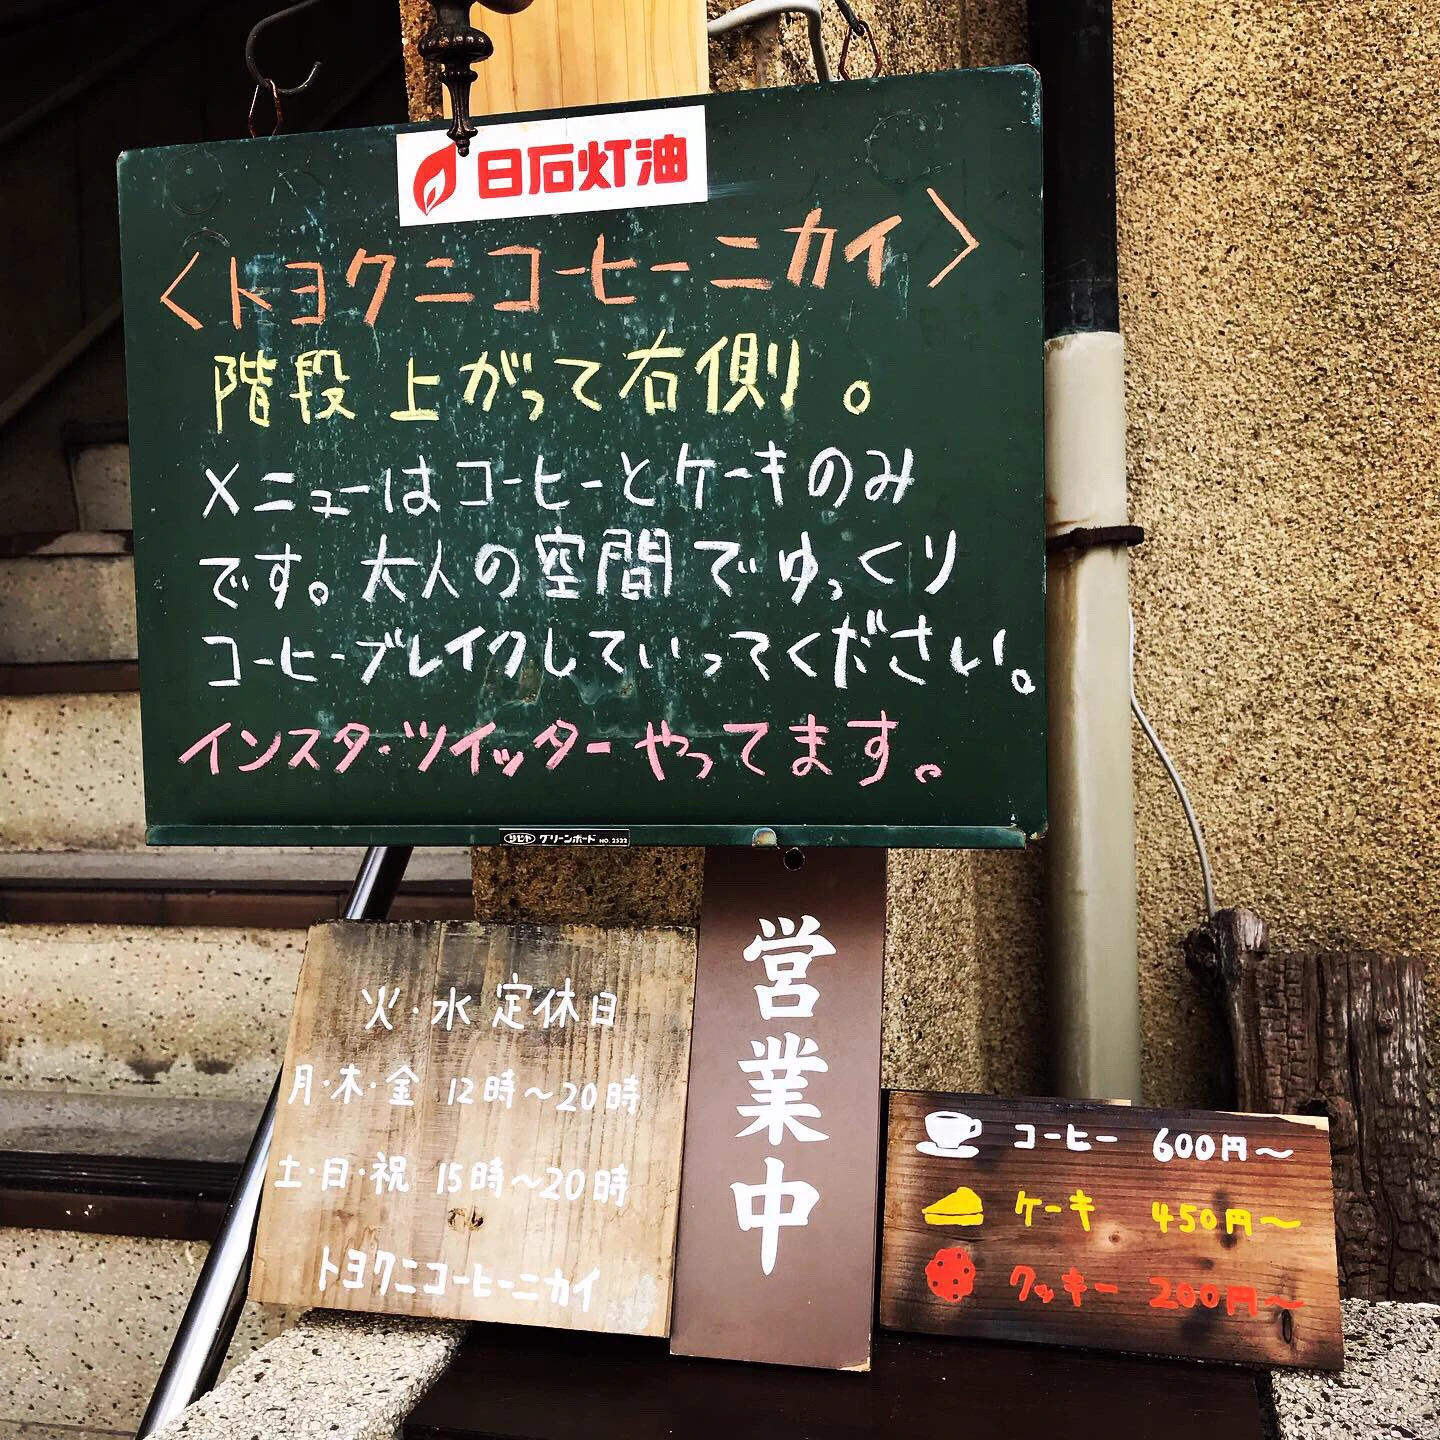 日石灯油
〈トヨクニコーヒーニカイ〉
階段上がって右側。
メニューはコーヒーとケーキのみ
です。大人の空間でゆっくり
コーヒーブレイクしていってください。
インスタ・ツイッターやってます。
うじや グリーンボード NO.2522
火・水 定休日
月・木・金 12時～20時
土・日・祝 15時～20時
トヨクニコーヒーニカイ
営業中
コーヒー 600円～
ケーキ 450円～
クッキー 200円～